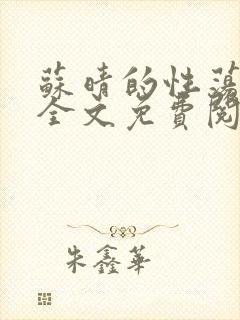 蘇晴的性蕩
全文免費閱
朱鑫華